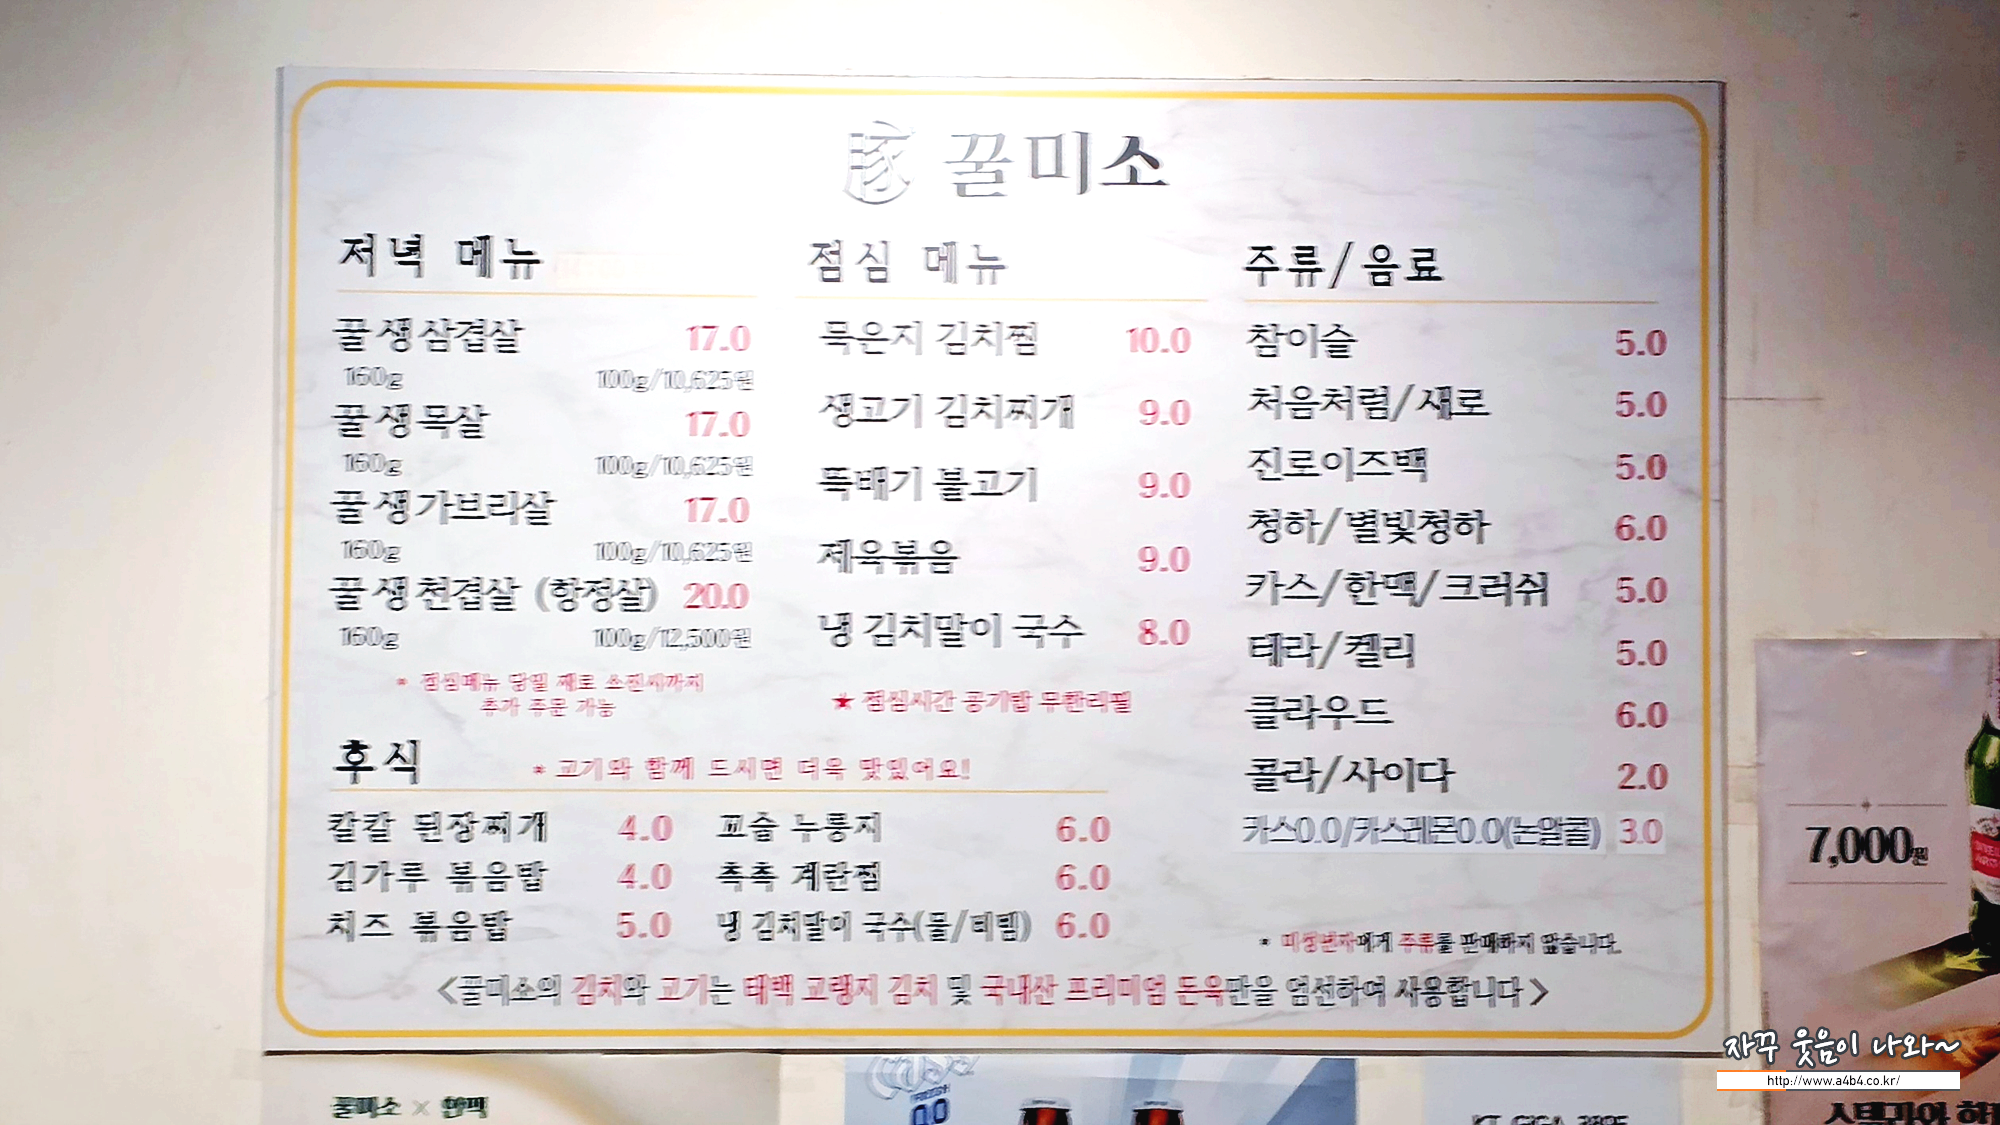 豚 꿀미소
저녁 메뉴
꿀생삼겹살 17.0
160g 100g/10,625원
꿀생목살 17.0
160g 100g/10,625원
꿀생가브리살 17.0
160g 100g/10,625원
꿀생천겹살 (항정살) 20.0
160g 100g/12,500원
* 점심메뉴 당일 재료 소진시까지
추가 주문 가능
점심 메뉴
묵은지 김치찜 10.0
생고기 김치찌개 9.0
뚝배기 불고기 9.0
제육볶음 9.0
냉김치말이 국수 8.0
★ 점심시간 공기밥 무한리필
주류/음료
참이슬 5.0
처음처럼/새로 5.0
진로이즈백 5.0
청하/별빛청하 6.0
카스/한맥/크러쉬 5.0
테라/켈리 5.0
클라우드 6.0
콜라/사이다 2.0
카스0.0/카스레몬0.0(논알콜) 3.0
* 미성년자에게 주류를 판매하지 않습니다.
후식 * 고기와 함께 드시면 더욱 맛있어요!
칼칼 된장찌개 4.0
김가루 볶음밥 4.0
치즈 볶음밥 5.0
꼬슬 누룽지 6.0
촉촉 계란찜 6.0
냉김치말이 국수(물/비빔) 6.0
<꿀미소의 김치와 고기는 태백 고랭지 김치 및 국내산 프리미엄 돈육만을 엄선하여 사용합니다>
7,000원
꿀미소 x 한맥
0.0
자꾸 웃음이 나와~
http://www.a4b4.co.kr/